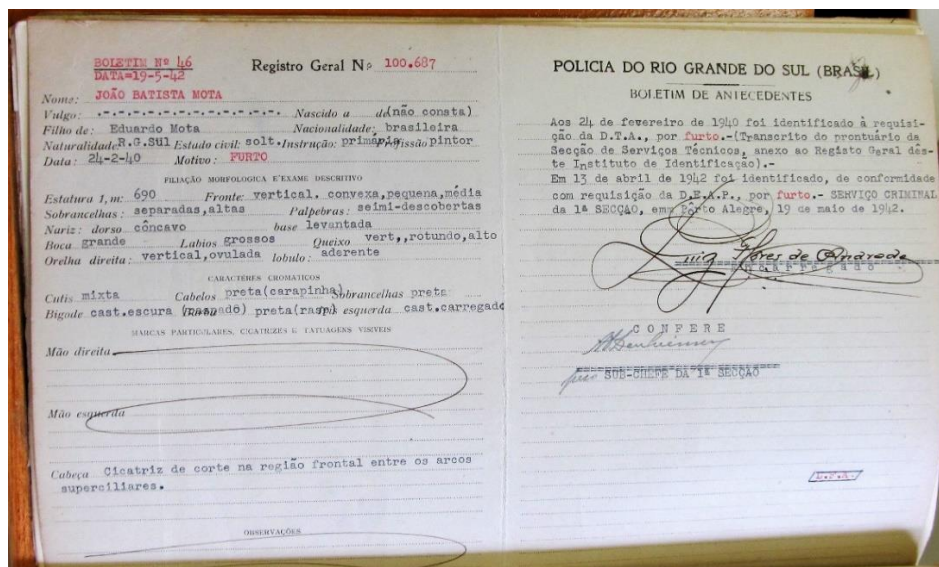 BOLETIM Nº 46
DATA=19-5-42
Registro Geral Nº 100.687
Nome: JOÃO BATISTA MOTA
Vulgo: .-.-.-.-.-.-.-.-.-.-.-. Nascido a de (não consta)
Filho de: Eduardo Mota Nacionalidade: brasileira
Naturalidade R.G.SUl Estado civil: solt. Instrução: primária Profissão pintor
Data: 24-2-40 Motivo: FURTO
FILIAÇÃO MORFOLOGICA E EXAME DESCRITIVO
Estatura 1, m: 690 Fronte: vertical. convexa,pequena,média
Sobrancelhas: separadas,altas Palpebras: seimi-descobertas
Nariz: dorso côncavo base levantada
Boca grande Labios grossos Queixo vert,,rotundo,alto
Orelha direita: vertical,ovulada lobulo: aderente
CARACTERES CROMATICOS
Cutis mixta Cabelos preta(carapinha) Sobrancelhas preta
Bigode cast.escura preta(rasp) esquerda cast.carregado
MARCAS PARTICULARES, CICATRIZES E TATUAGENS VISIVEIS
Mão direita
Mão esquerda
Cabeça Cicatriz de corte na região frontal entre os arcos
superciliares.
OBSERVAÇÕES
POLICIA DO RIO GRANDE DO SUL (BRASIL)
BOLETIM DE ANTECEDENTES
Aos 24 de fevereiro de 1940 foi identificado à requisi-
ção da D.T.A., por furto.-(Transcrito do prontuário da
Secção de Serviços Técnicos, anexo ao Registo Geral dês-
te Instituto de Identificação).-
Em 13 de abril de 1942 foi identificado, de conformidade
com requisição da D.E.A.P., por furto.- SERVIÇO CRIMINAL
da 1ª SECÇÃO, em Pôrto Alegre, 19 de maio de 1942.
Luiz Flores de Andrade
Encarregado
CONFERE
SUB-CHEFE DA 1ª SECÇÃO